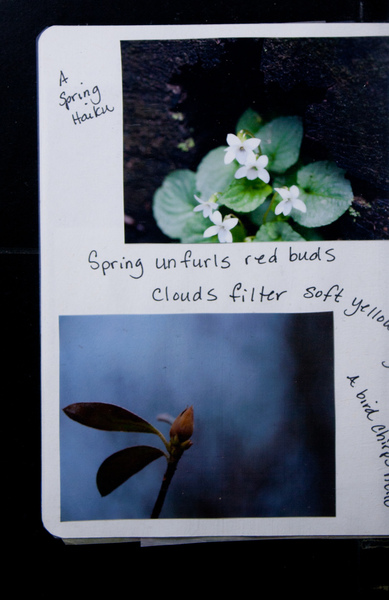 A
Spring
Haiku
Spring unfurls red buds
Clouds filter soft yellow
A bird chirps